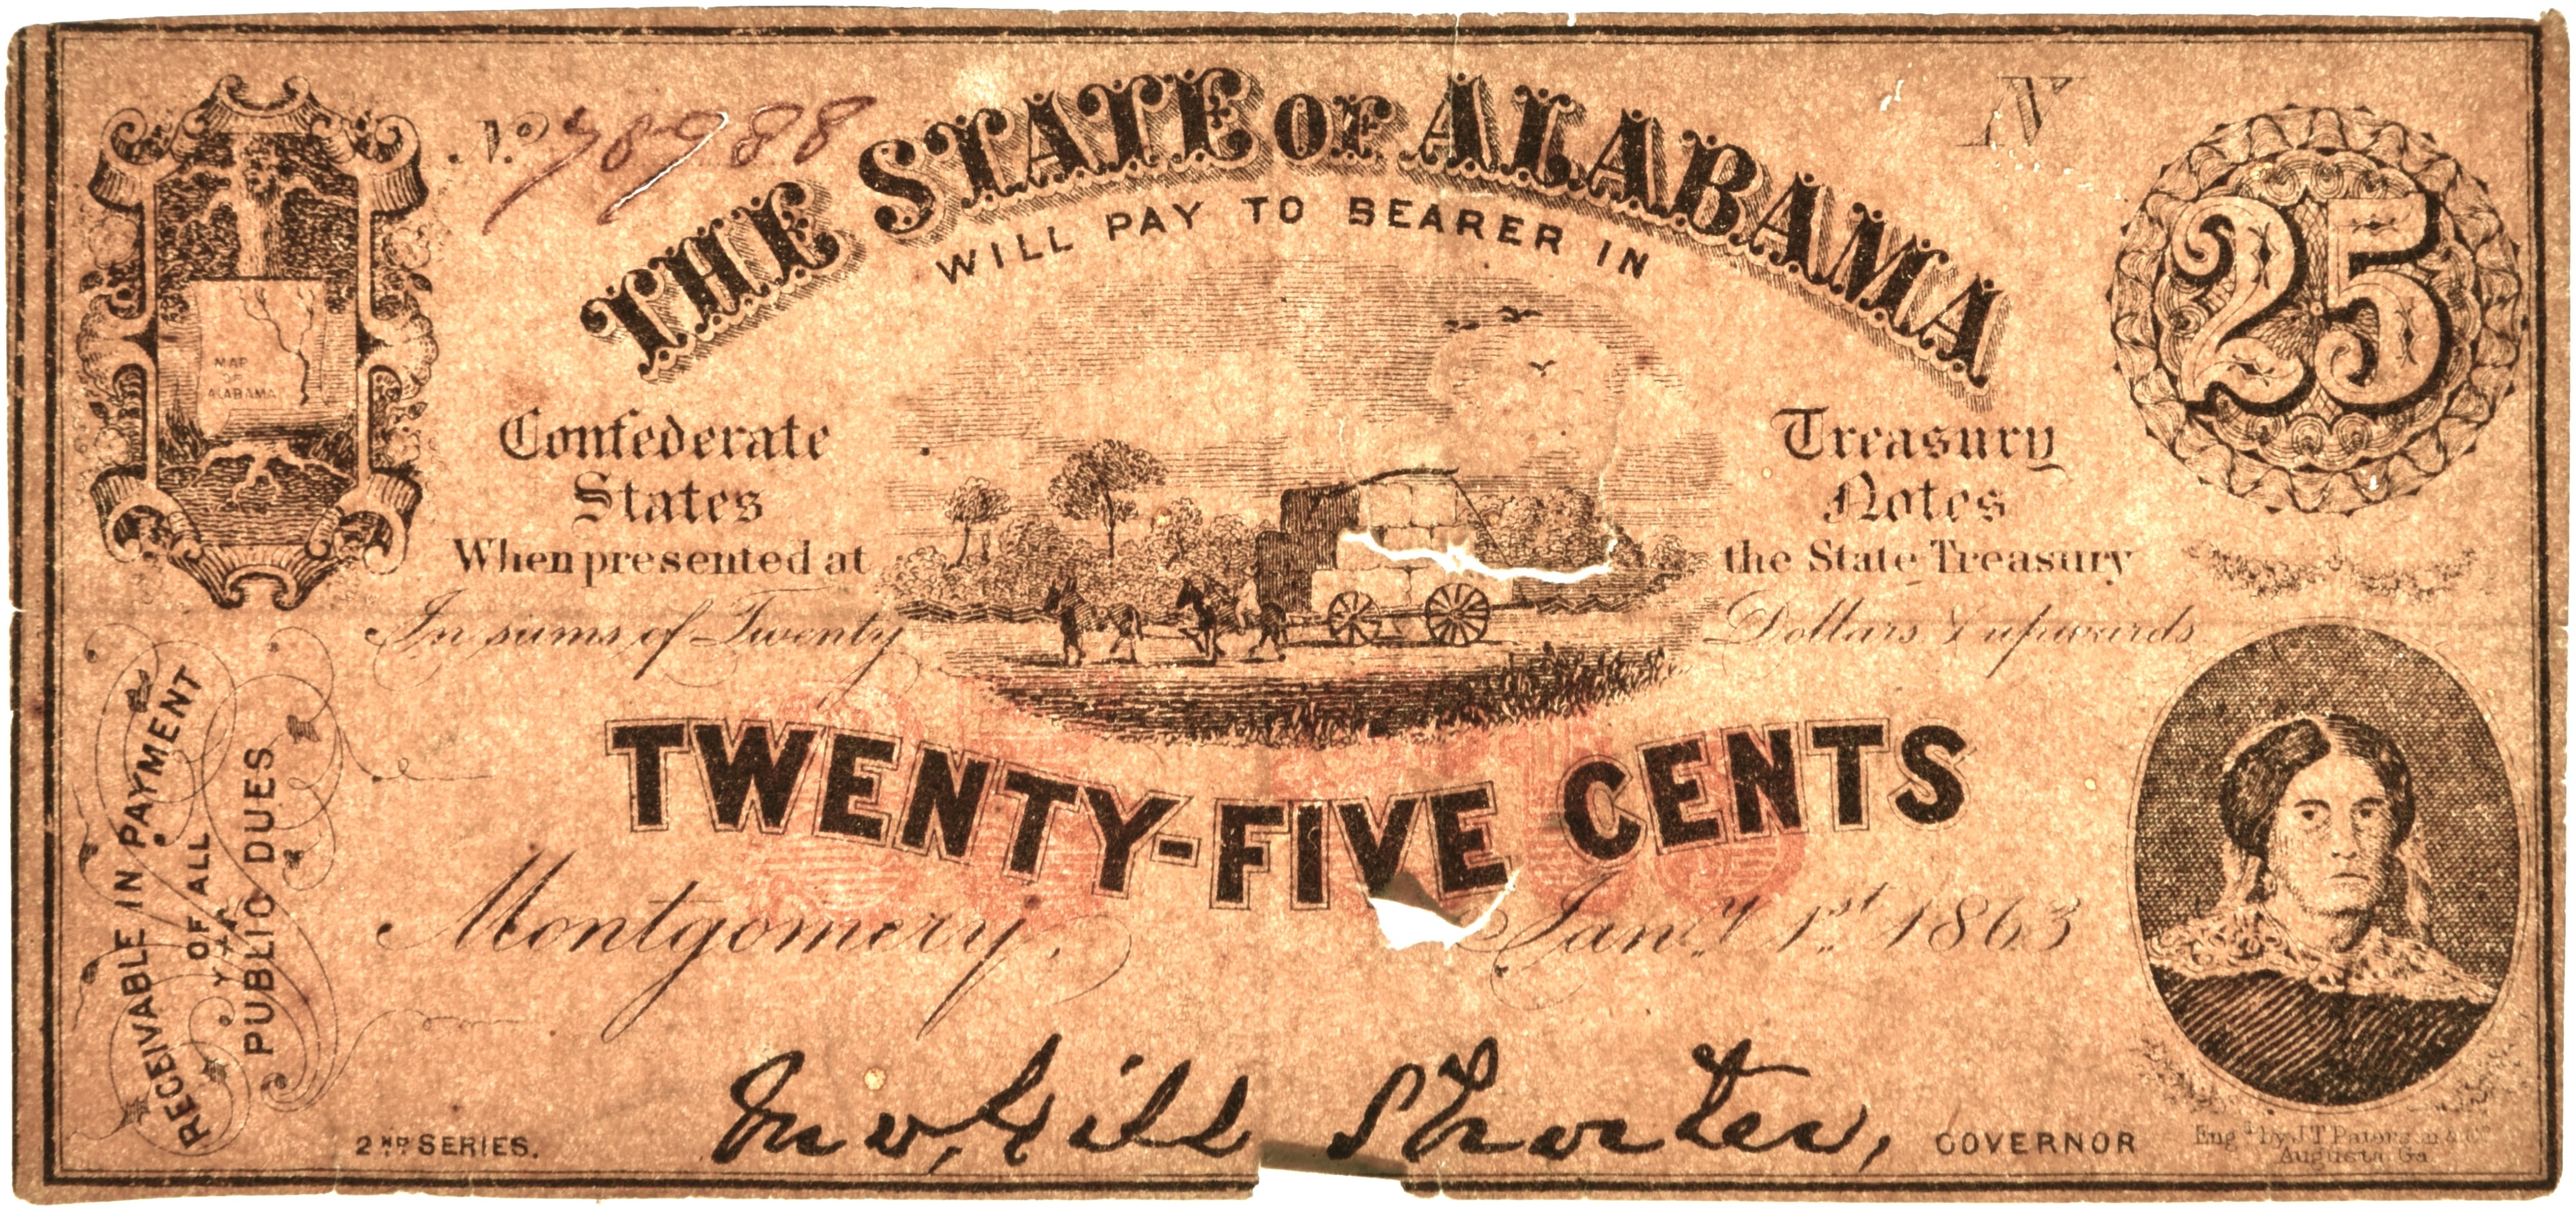 No 78988
N
THE STATE OF ALABAMA
WILL PAY TO BEARER IN
25
MAP
OF
ALABAMA
Confederate
States
When presented at
In sums of Twenty
Treasury
Notes
the State Treasury
Dollars & upwards
TWENTY-FIVE CENTS
Montgomery, Jany. 1st. 1863
RECEIVABLE IN PAYMENT
OF ALL
PUBLIC DUES
Jno, Gill Shorter, GOVERNOR
2ND SERIES.
Engd by J T Paterson & Co
Augusta Ga